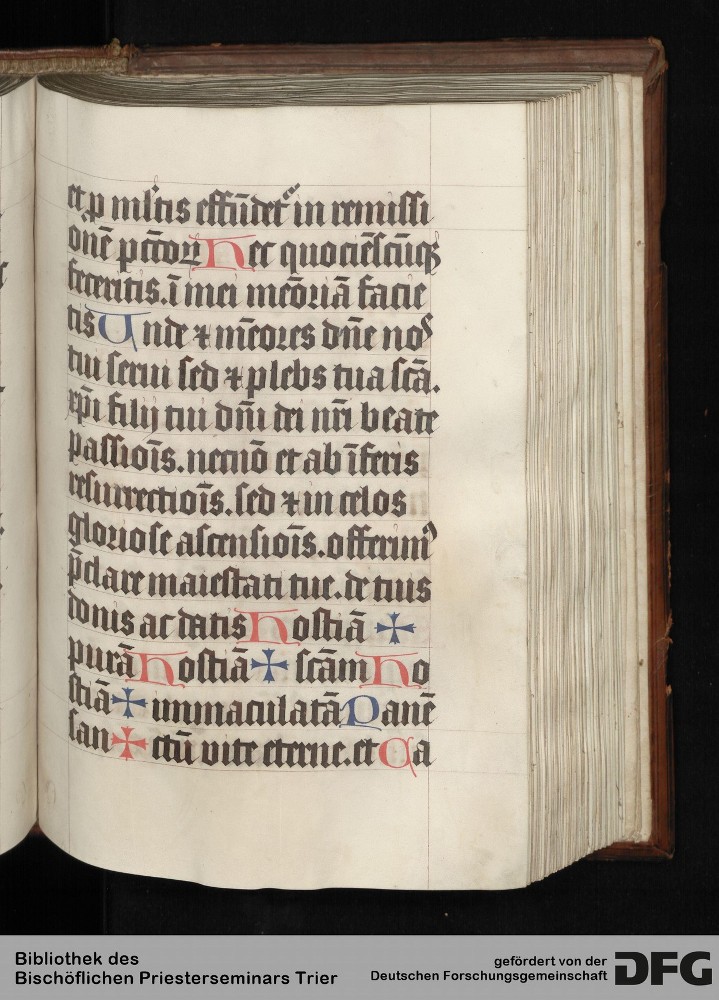 et p ml̄tis effūdet᷑ in remissi
onē pctōꝝ Hec quociēscūqꝫ
feceritis. ī mei mēoriā facie
tis Unde ⁊ mēores dn̄e noꝰ
tui serui sed ⁊ plebs tua scā.
xp̄i filij tui dn̄i dei nr̄i beate
passiōis. necnō et ab īferis
resurrectiōis. sed ⁊ in celos
gloriose ascensiōis. offerimꝰ
p̄clare maiestati tue. de tuis
donis ac datis Hostiā ✠
purā Hostiā ✠ scām Ho
stiā ✠ immaculatā Panē
san ✠ ctū vite eterne. et Ca
Bibliothek des
Bischöflichen Priesterseminars Trier
gefördert von der
Deutschen Forschungsgemeinschaft
DFG